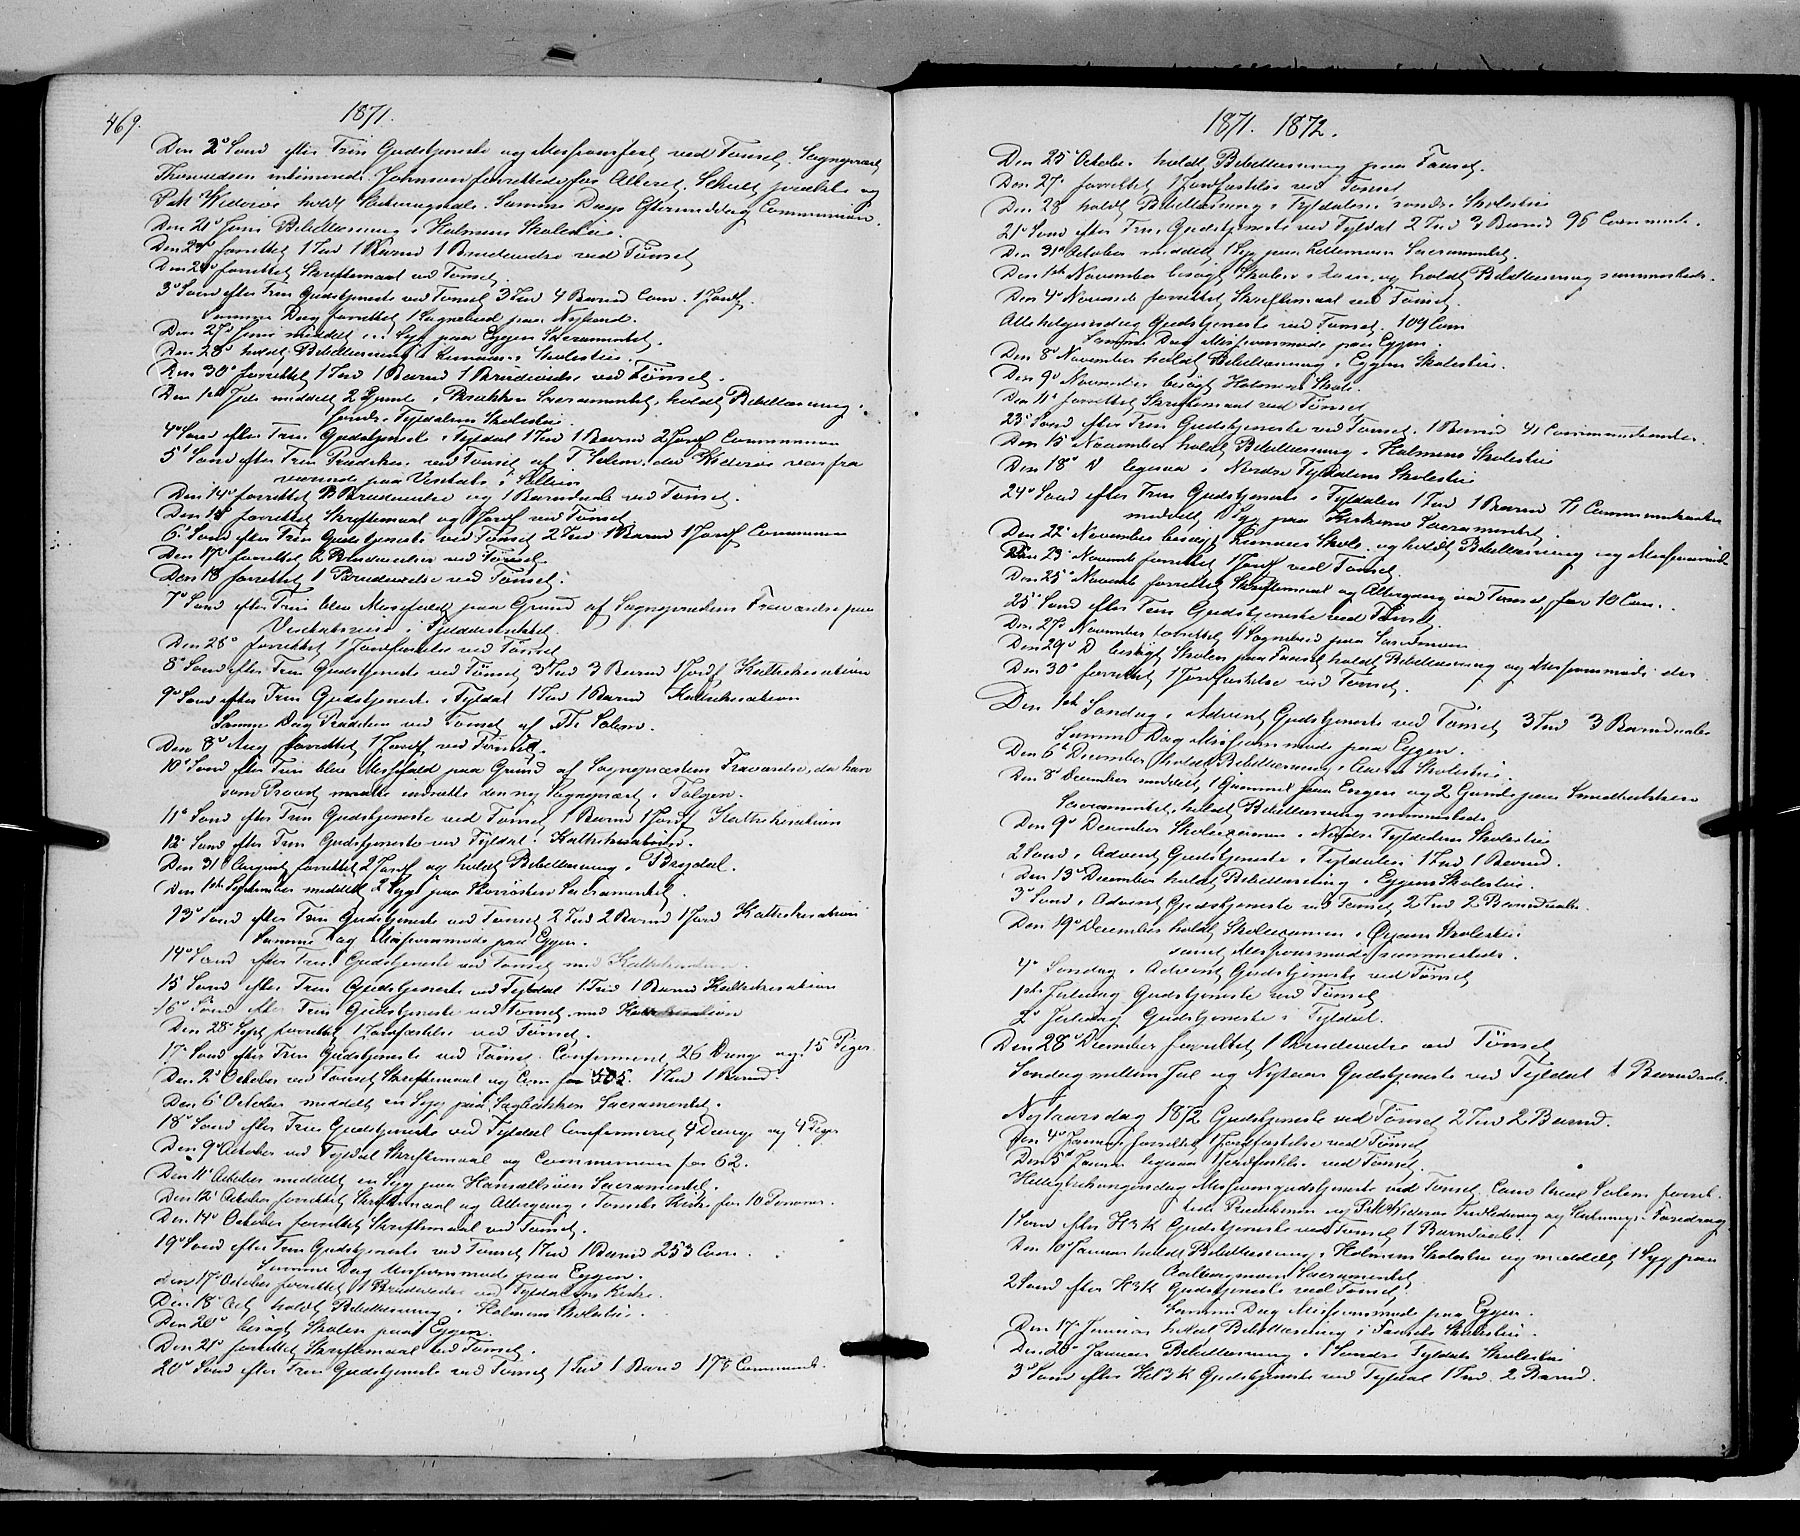 469.
1871.
Den 2den Sönd efter Trin Gudstjeneste og Missionsfest ved Tönset. Sognepræst
Thorvaldsen intimerede. Johnson forrettede for Alteret, Schult prædikte og
Wideröe holdt Samme Dags Eftermiddag Communion.
Den 21de Juni Bibellæsning i Holmens Skolestue.
Den 23de forrettet 1 Ind 1 Barnd 1 Brudevielse ved Tönset
Den 24de forrettet Skriftemaal ved Tönset.
3de Sönd efter Trin Gudstjeneste ved Tönset 3 Ind 4 Barnd Com. 1 Jordf.
Samme Dag forrettet 1 Sognebud paa Nyland.
Den 27de Juni meddelt Syg paa Eggen Sacramentet.
Den 28de holdt Bibellæsning i Skolestue.
Den 30te forrettet 1 Ind 1 Barnd 1 Brudevielse ved Tönset.
Den 1ste Juli meddelt 2 Gamle i Brækken Sacramentet, holdt Bibellæsning i
söndre Tyldalens Skolestue.
4de Sönd efter Trin Gudstjeneste i Tyldal 1 Ind 1 Barnd 2 Jordf Communion
5te Sönd efter Trin Prædiken ved Tönset af T. Solem, da Wideröe var fra
værende paa Visitats i
Den 14de forrettet 3 Brudevielse og 1 Barndaab ved Tönset.
Den 15de forrettet Skriftemaal og 1 Jordf ved Tönset
6te Sönd efter Trin Gudstjeneste ved Tönset 2 Ind 1 Barnd 1 Jordf Communion
Den 17de forrettet 2 Brudevielser ved Tönset.
Den 18 forrettet 1 Brudevielse ved Tönset.
7de Sönd efter Trin blev Messefald paa Grund af Sognepræstens Fraværelse paa
Visitatsreise i
Den 26de forrettet 1 Jordfæstelse ved Tönset
8de Sönd efter Trin Gudstjeneste ved Tönset 3 Ind 3 Barnd 1 Jordf Kathekisation
9de Sönd efter Trin Gudstjeneste i Tyldal 1 Ind 1 Barnd Kathekisation
Samme Dag Prædiken ved Tönset af Th Solem.
Den 8de Aug forrettet 1 Jordf ved Tönset.
10de Sönd efter Trin blev Messefald paa Grund af Sognepræstens Fraværelse, da han
som Provst maatte indsætte den ny Sognepræst i Tolgen.
11te Sönd efter Trin Gudstjeneste ved Tönset 1 Barnd 1 Jordf Kathekisation
12te Sönd efter Trin Gudstjeneste ved Tyldal. Kathekisation.
Den 31te August forrettet 2 Jordf og holdt Bibellæsning i Brydal.
Den 1ste September meddelt 2 Syge paa Sacramentet.
13de Sönd efter Trin Gudstjeneste ved Tönset 2 Ind 2 Barnd 1 Jord Kathekisation
Samme Dag Missionsmöde paa Eggen.
14de Sönd efter Trin Gudstjeneste ved Tönset med Kathekisation.
15de Sönd efter Trin Gudstjeneste ved Tyldal 1 Ind 1 Barnd Kathekisation
16de Sönd efter Trin Gudstjeneste ved Tönset med Kathekisation
Den 28de Sept forrettet 1 Jordfæstelse ved Tönset.
17de Sönd efter Trin Gudstjeneste ved Tönset. Confirmeret 26 Drenge og 15 Piger
Den 2den October ved Tönset Skriftemaal og Com for 505. 1 Ind 1 Barnd.
Den 6te October meddelt en Syg paa Sacramentet.
18de Sönd efter Trin Gudstjeneste ved Tyldal Confirmeret 4 Drenge og 4 Piger
Den 9de October ved Tyldal Skriftemaal og Communion for 62.
Den 11te October meddelt en Syg paa Sacramentet.
Den 12te October forrettet Skriftemaal og Altergang i Tönsets Kirke for 10 Personer.
Den 14de October forrettet Skriftemaal ved Tönset.
19de Sönd efter Trin Gudstjeneste ved Tönset 1 Ind 1 Barnd 253 Com.
Samme Dag Missionsmöde paa Eggen.
Den 17de October forrettet 1 Brudevielse ved Tyldalens Kirke.
Den 18de Oct holdt Bibellæsning i Holmens Skolestue.
Den 20de besögt Skolen paa Eggen.
Den 21de forrettet Skriftemaal ved Tönset.
20de Sönd efter Trin Gudstjeneste ved Tönset 1 Ind 1 Barnd 178 Communik.
1871. 1872.
Den 25de October holdt Bibellæsning paa Fauset.
Den 27de forrettet 1 Jordfæstelse ved Tönset
Den 28 holdt Bibellæsning i Tyldalens söndre Skolestue
21de Sönd efter Trin Gudstjeneste ved Tyldal 2 Ind 3 Barnd 96 Communik.
Den 31te October meddelt 1 Syg paa Sacramentet.
Den 1ste November besögt Skolen i og holdt Bibellæsning sammesteds.
Den 4de November forrettet Skriftemaal ved Tönset.
Allehelgensdag Gudstjeneste ved Tönset. 109 Com
Samme Dag Missionsmöde paa Eggen.
Den 8de November holdt Bibellæsning i Eggens Skolestue.
Den 9de November besögt Holmens Skole.
Den 11te forrettet Skriftemaal ved Tönset
23de Sönd efter Trin Gudstjeneste ved Tönset. 1 Barnd 41 Communikanter.
Den 15 November holdt Bibellæsning i Holmens Skolestue
Den 18de D ligesaa i Nordre Tyldalens Skolestue
24de Sönd efter Trin Gudstjeneste i Tyldalen 1 Ind 1 Barnd 71 Communikanter
meddelt 1 Syg paa Sacramentet.
Den 22de November besögt Skole og holdt Bibellæsning og Missionsmöde
Den 23de Novemb forrettet 1 Jordf ved Tönset.
Den 25de Novemb forrettet Skriftemaal og Altergang ved Tönset for 10 Com.
25de Sönd efter Trin Gudstjeneste ved Tönset.
Den 27de November forrettet 1 Sognebud paa
Den 29de D besögt Skolen paa Fauset, holdt Bibellæsning og Missionsmöde der.
Den 30te forrettet 1 Jordfæstelse ved Tönset.
Den 1ste Söndag i Advent Gudstjeneste ved Tönset 3 Ind 3 Barndaab.
Samme Dag Missionsmöde paa Eggen.
Den 6te December holdt Bibellæsning i Skolestue.
Den 8de December meddelt 1 Gammel paa Engen og 2 Gamle paa
Sacramentet, holdt Bibellæsning sammesteds.
Den 9de December Skoleexamen i Nordre Tyldalens Skolestue
2 Sönd i Advent Gudstjeneste i Tyldalen 1 Ind 1 Barnd.
Den 13de December holdt Bibellæsning i Eggens Skolestue.
3de Sönd i Advent Gudstjeneste ved Tönset 2 Ind 2 Barndaab.
Den 19de December holdt Skoleexamen i Skolestue
samt Missionsmöde sammesteds.
4de Söndag i Advent Gudstjeneste ved Tönset
1ste Juledag Gudstjeneste ved Tönset
2den Juledag Gudstjeneste i Tyldal.
Den 28de December forrettet 1 Brudevielse ved Tönset
Söndag mellem Jul og Nytaar Gudstjeneste ved Tyldal 1 Barndaab.
Nytaarsdag 1872 Gudstjeneste ved Tönset 2 Ind 2 Barnd.
Den 4de Januar forrettet 1 Jordfæstelse ved Tönset
Den 5te Januar ligesaa 1 Jordfæstelse ved Tönset.
Helligtrekongersdag Missionsgudstjeneste ved Tönset. Solem forret
tede Prædikenen og Wideröe Indledning og Slutnings-Foredrag
1 Sönd efter H3K Gudstjeneste ved Tönset 1 Barndaab.
Den 10 Januar holdt Bibellæsning i Holmens Skolestue og meddelt 1 Syg paa
Aalborgmoen Sacramentet
2 Sönd efter H3K Gudstjeneste ved Tönset
Samme Dag Missionsmöde paa Eggen.
Den 17de Januar holdt Bibellæsning i Fausets Skolestue.
Den 20de Januar Bibellæsning i Söndre Tyldals Skolestue
3de Sönd efter Hel3K Gudstjeneste ved Tyldal 1 Ind. 2 Barnd.